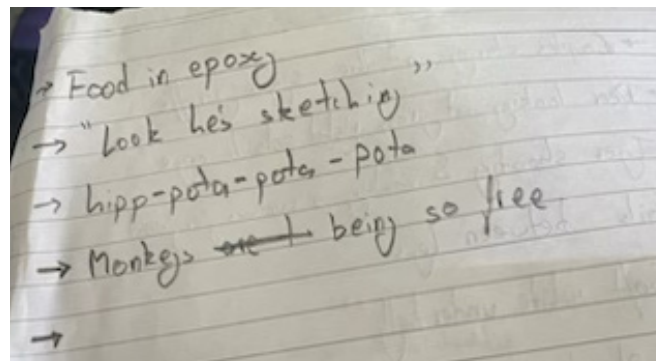 → Food in epoxy
→ "Look he's sketching"
→ hipp-pota-pota-pota
→ Monkeys being so free
→